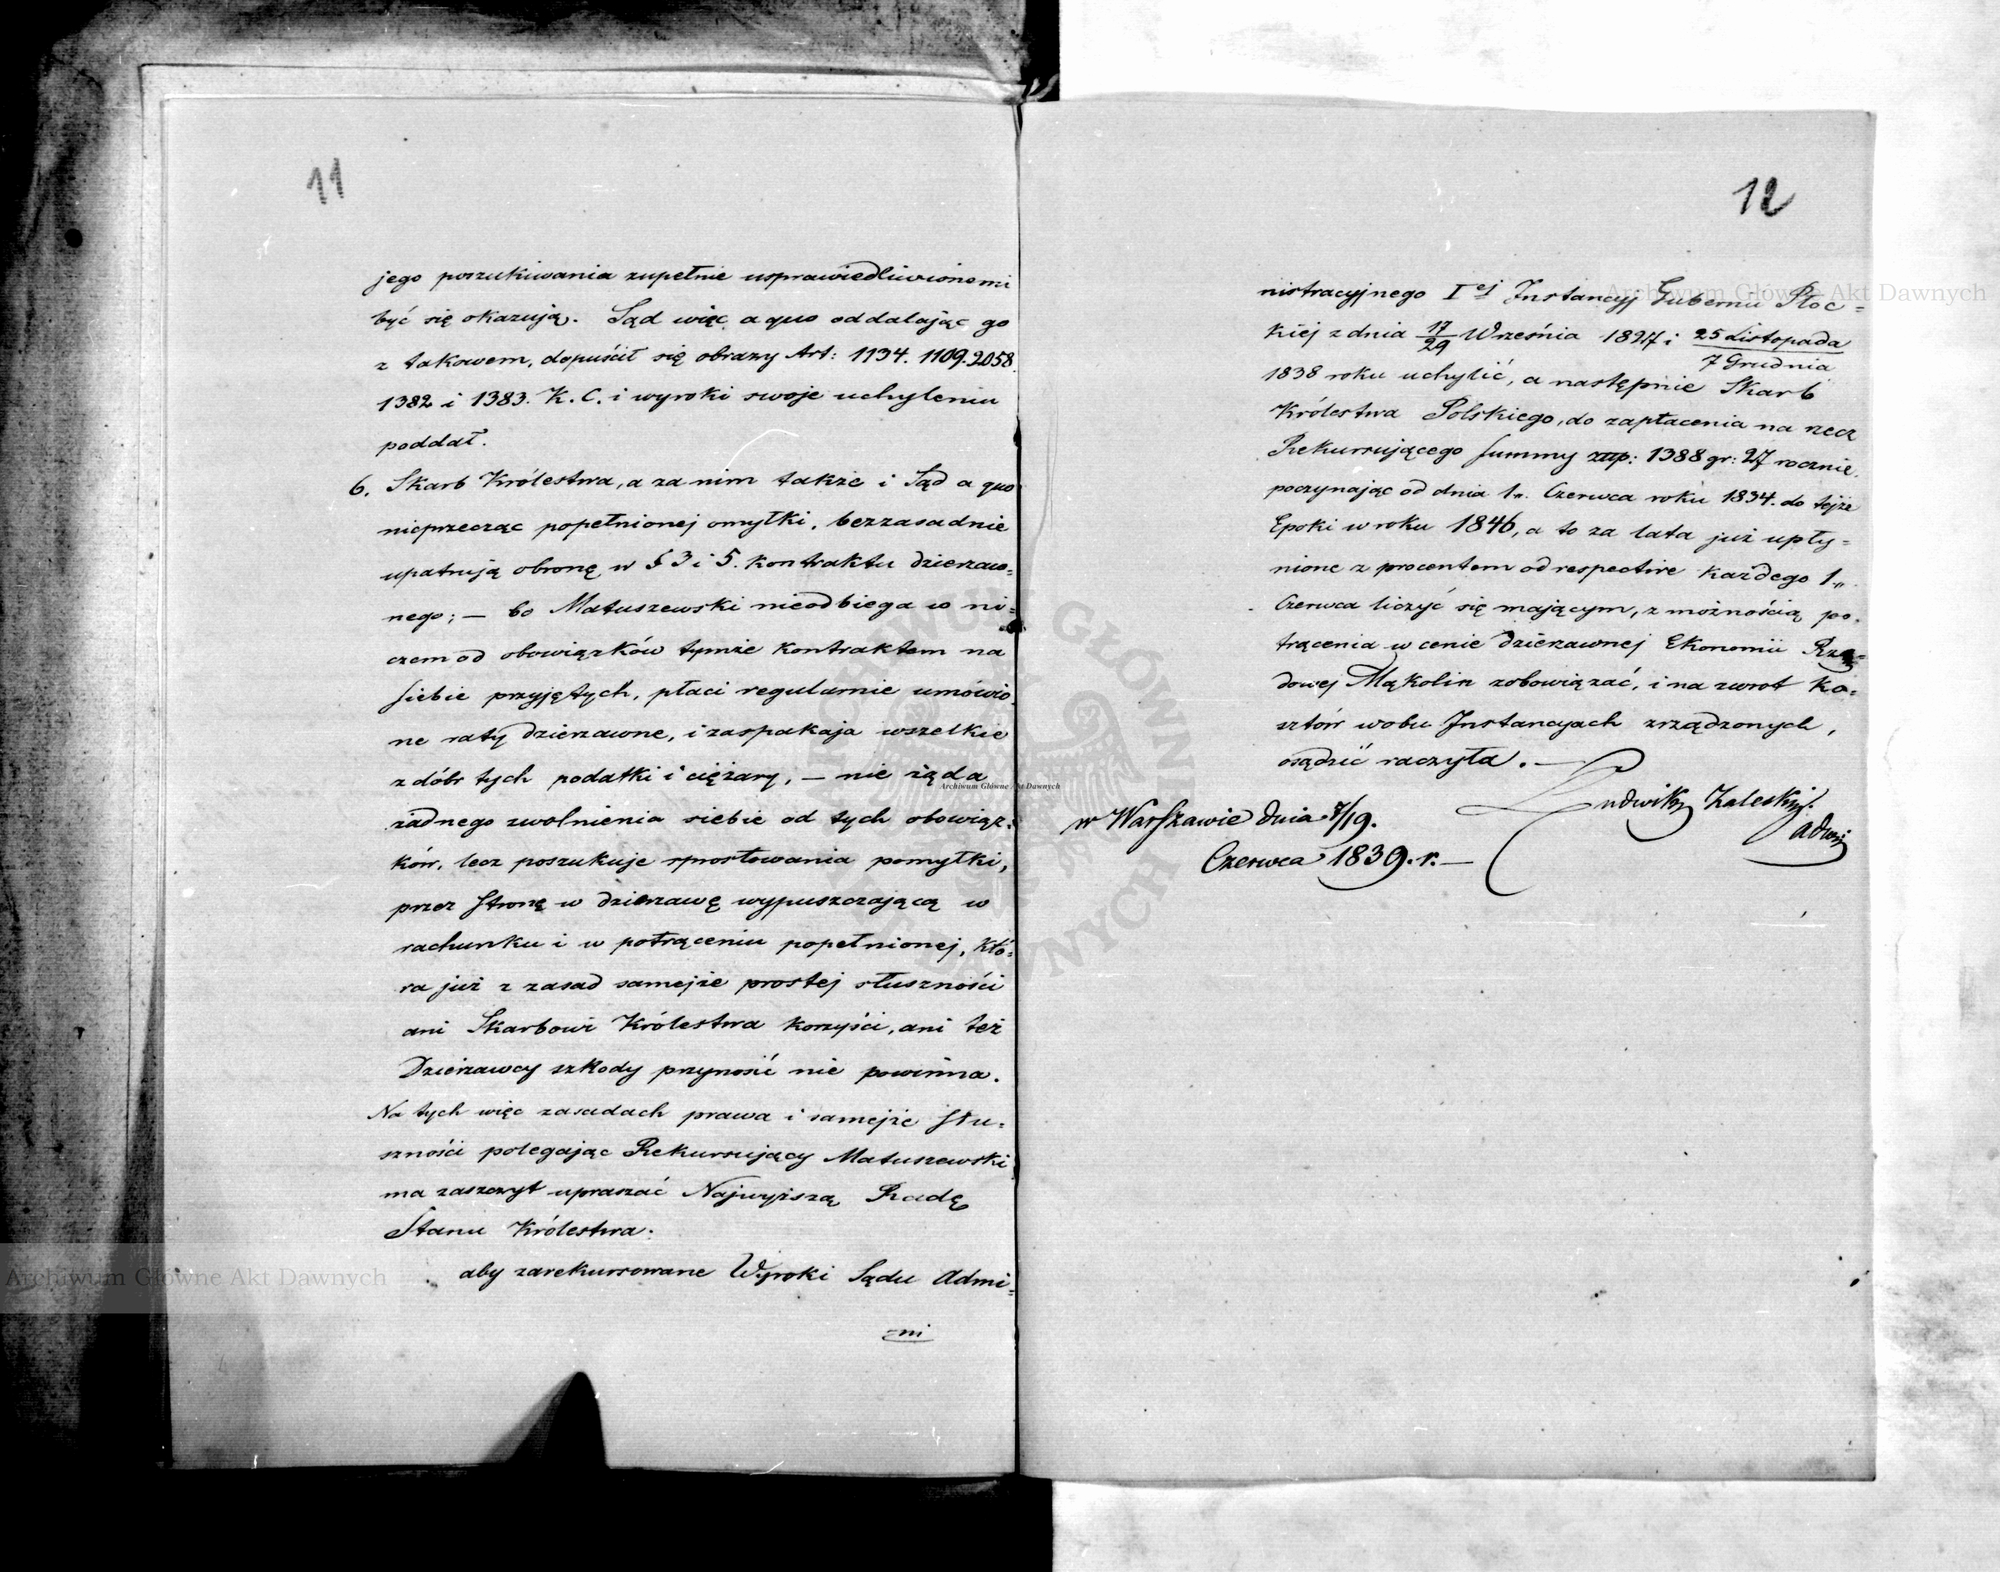 11
jego poszukiwania zupełnie usprawiedliwionemi
być się okazują. Sąd więc a quo oddalając go
z takowem, dopuścił się obrazy Art: 1134. 1109. 2058.
1382 i 1383. K. C. i wyroki swoje uchyleniu
poddał.
6. Skarb Królestwa, a za nim także i Sąd a quo
nieprzecząc popełnionej omyłki, bezzasadnie
upatrują obronę w § 3 i 5. kontraktu dzierzaw=
nego; — bo Matuszewski nieodbiega w ni=
czem od obowiązków tymże kontraktem na
siebie przyjętych, płaci regularnie umówio
ne raty dzierzawne, i zaspakaja wszelkie
z dóbr tych podatki i ciężary, — nie żąda
żadnego zwolnienia siebie od tych obowiąz=
ków, lecz poszukuje sprostowania pomyłki,
przez Stronę w dzierzawę wypuszczającą w
rachunku i w potrąceniu popełnionej, któ=
ra już z zasad samejże prostej słuszności
ani Skarbowi Królestwa korzyści, ani też
Dzierżawcy szkody przynosić nie powinna.
Na tych więc zasadach prawa i samejże słu=
szności polegając Rekurrujący Matuszewski
ma zaszczyt upraszać Najwyższą Radę
Stanu Królestwa.
aby zarekurrowane Wyroki Sądu Admi=
=ni
12
nistracyjnego I ej Instancyj Gubernii Płoc=
kiej z dnia 17/29 Września 1827 i 25 Listopada
7 Grudnia
1838 roku uchylić, a następnie Skarb
Królestwa Polskiego, do zapłacenia na rzecz
Rekurrującego Summy złp: 1388 gr: 27 rocznie
poczynając od dnia 1n. Czerwca roku 1834. do tejże
Epoki w roku 1846, a to za lata już upły=
nione z procentem od respective każdego 1n
Czerwca liczyć się mającym, z możnością po=
trącenia w cenie dzierzawnej Ekonomii Rzą=
dowej Mąkolin zobowiązać, i na zwrot ko=
sztów wobu Instancyach zrządzonych,
osądzić raczyła. —
Ludwik Zaleski
Adwo
w Warszawie dnia 7/19.
Czerwca 1839. r. —
Archiwum Główne Akt Dawnych
Archiwum Główne Akt Dawnych
Archiwum Główne Akt Dawnych